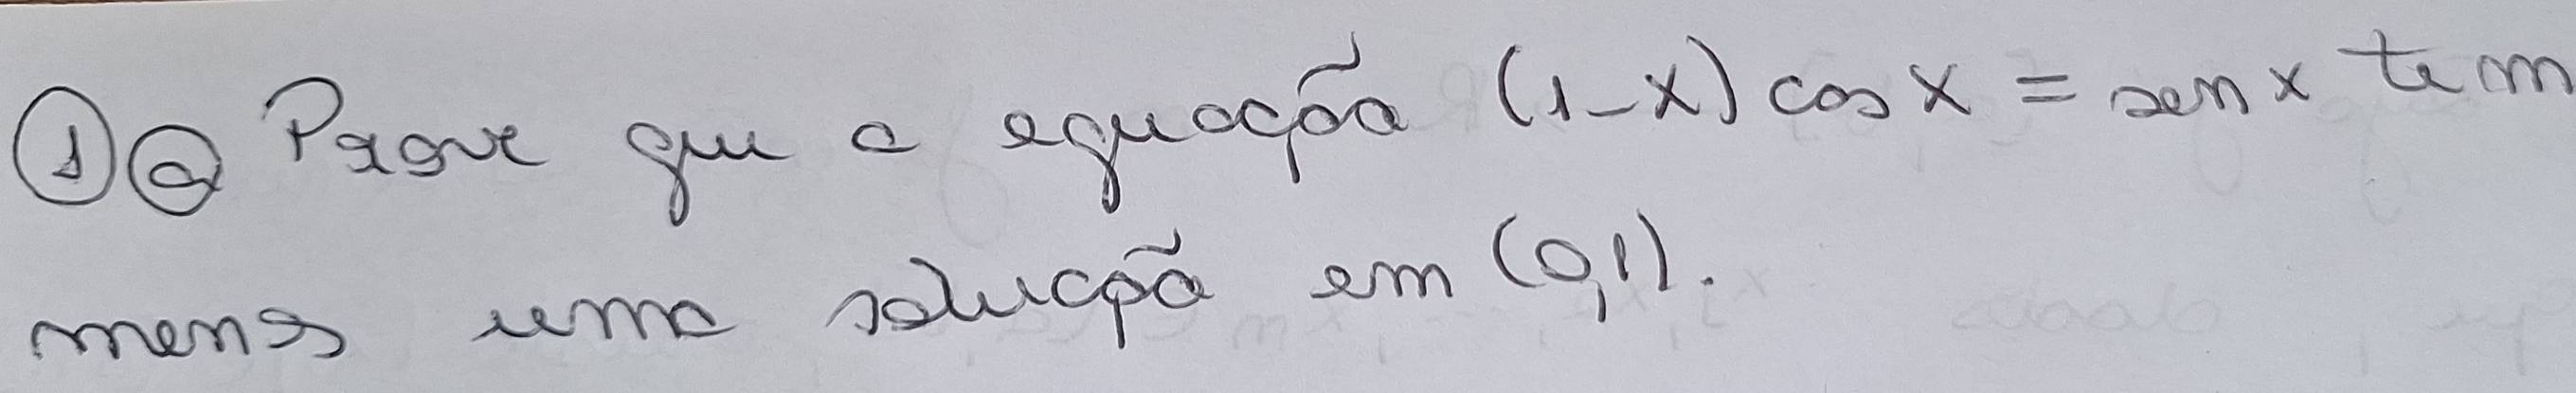 ① ⓐ Prove que a equação (1-x) cos x = sen x tem
menos uma solução em (0,1).